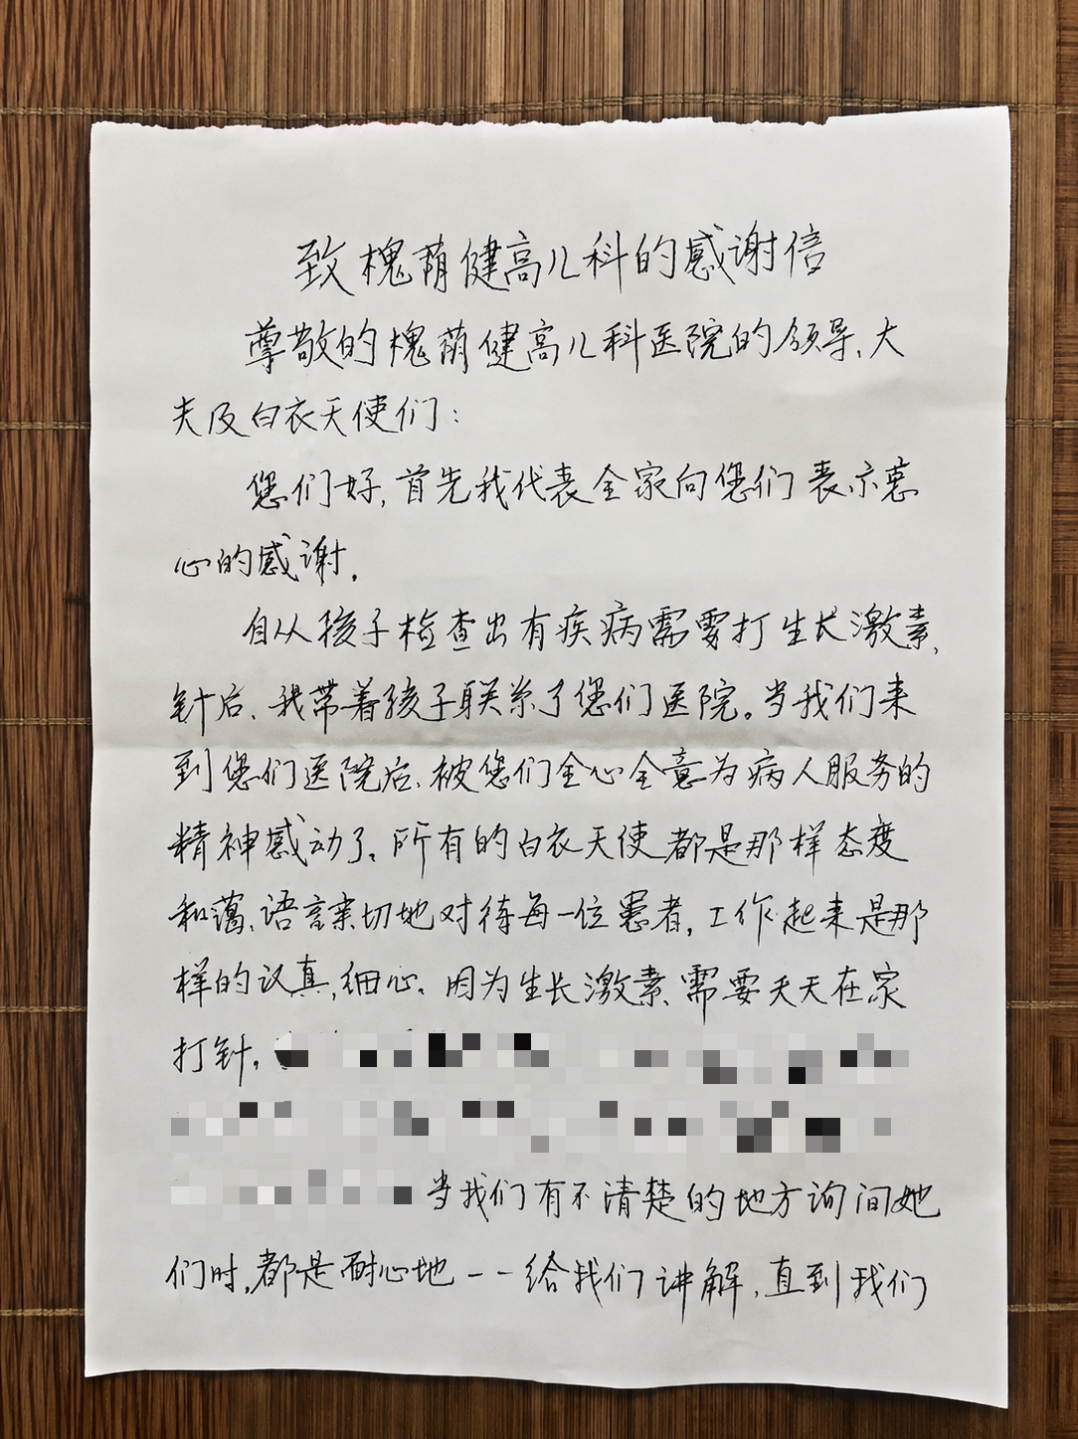 致槐荫健高儿科的感谢信
尊敬的槐荫健高儿科医院的领导、大
夫及白衣天使们：
您们好，首先我代表全家向您们表示衷
心的感谢。
自从孩子检查出有疾病需要打生长激素
针后、我带着孩子联系了您们医院。当我们来
到您们医院后、被您们全心全意为病人服务的
精神感动了。所有的白衣天使都是那样态度
和蔼、语言亲切地对待每一位患者，工作起来是那
样的认真，细心。因为生长激素、需要天天在家
打针。
当我们有不清楚的地方询问她
们时，都是耐心地一一给我们讲解，直到我们